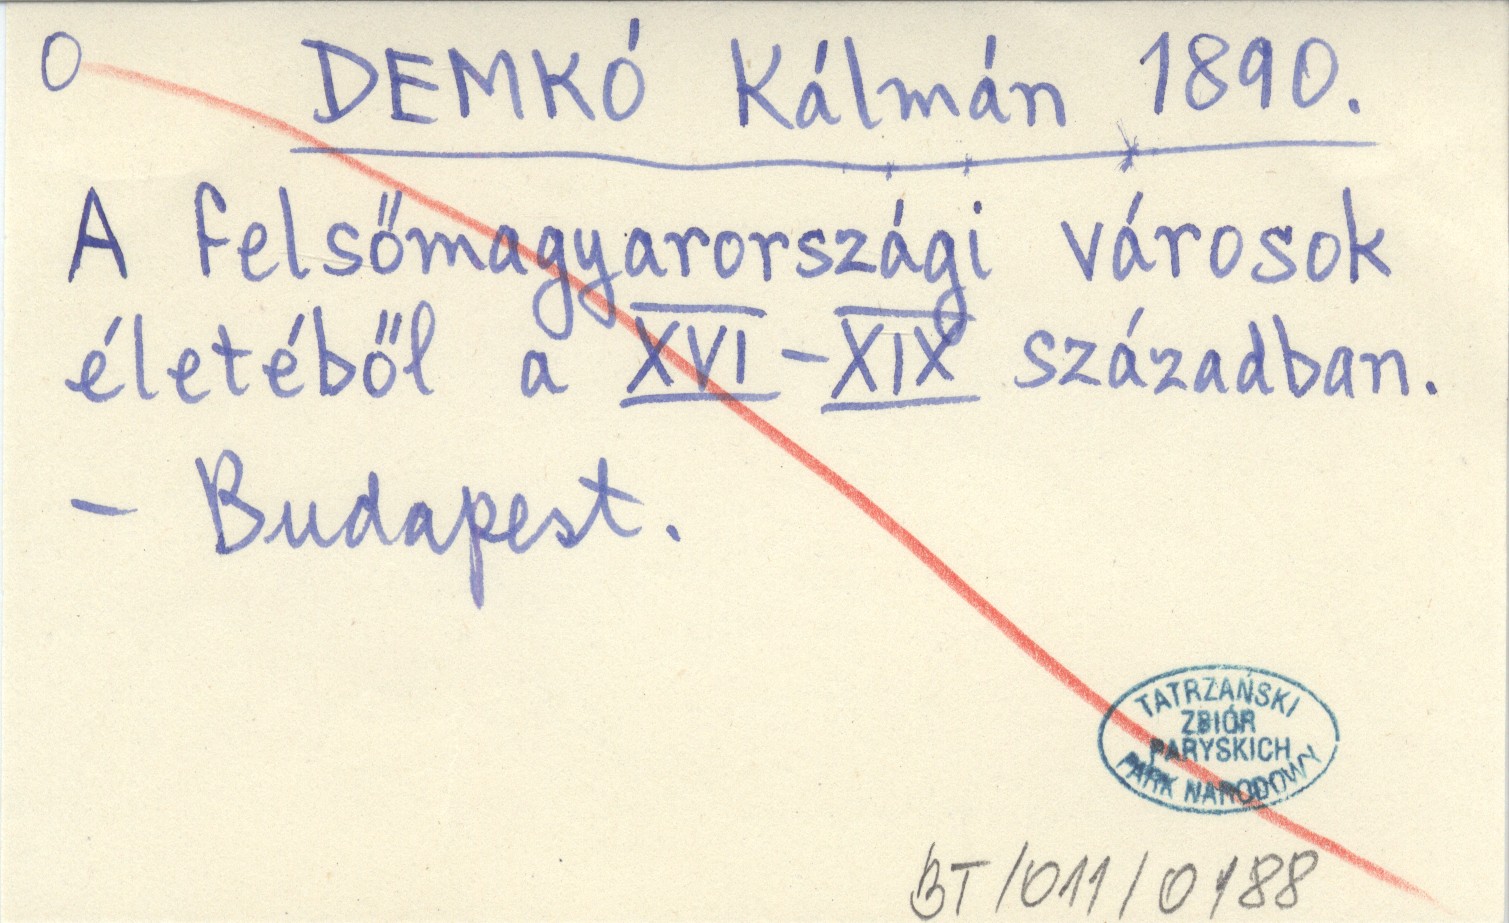 O DEMKÓ Kálmán 1890.
A felsőmagyarországi városok
életéből a XVI-XIX században.
- Budapest.
TATRZAŃSKI
ZBIÓR
PARYSKICH
PARK NARODOWY
BT/011/0188